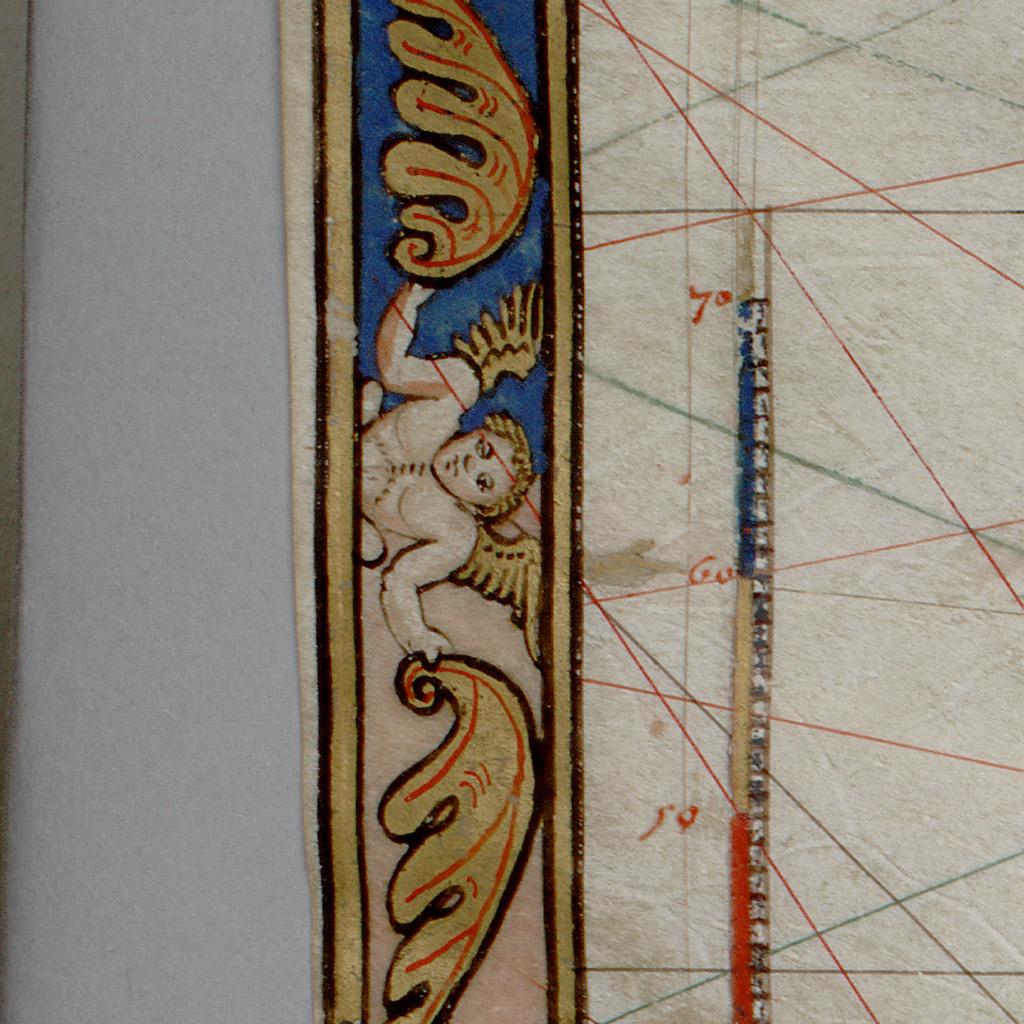 70
60
50